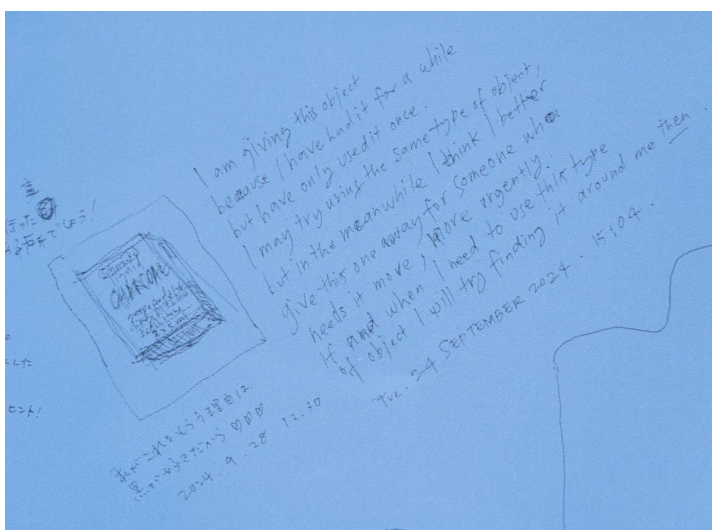 I am giving this object
because I have had it for a while
but have only used it once.
I may try using the same type of object,
but in the meanwhile I think I better
give this one away for someone who
needs it more, more urgently.
If and when I need to use this type
of object I will try finding it around me then.
Tue. 24 SEPTEMBER 2024. 15:04.
CHARCOAL
私がこれをもらう理由は
黒がすきだから♡♡♡
2024. 9. 28 12:30